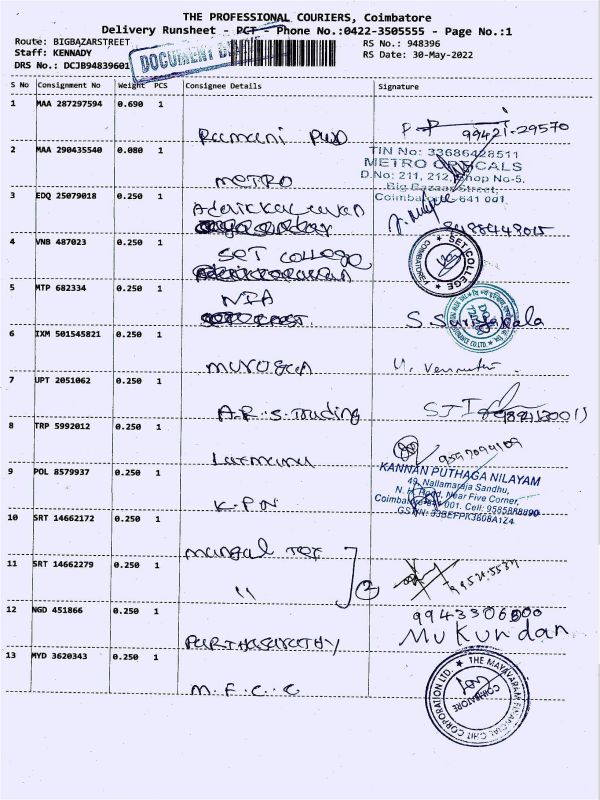 THE PROFESSIONAL COURIERS, Coimbatore
Delivery Runsheet - PCT - Phone No.:0422-3505555 - Page No.:1
Route: BIGBAZARSTREET
RS No.: 948396
Staff: KENNADY
RS Date: 30-May-2022
DRS No.: DCJB94839601
DOCUMENT
S No Consignment No Weight PCS Consignee Details Signature
1 MAA 287297594 0.690 1
Ramani 99421-29570
2 MAA 290435540 0.080 1
METRO
TIN No: 33686428511
METRO OPTICALS
D.No: 211, 212, Shop No-5,
Big Bazaar Street,
Coimbatore-641 001
3 EDQ 25079018 0.250 1
4 VNB 487023 0.250 1
SET COLLEGE
SET COLLEGE
COIMBATORE
5 MTP 682334 0.250 1
NIA
S. Suryakala
6 IXM 501545821 0.250 1
Murugan
7 UPT 2051062 0.250 1
A.R.S. Trading
8 TRP 5992012 0.250 1
9 POL 8579937 0.250 1
K.P.N
KANNAN PUTHAGA NILAYAM
49, Nallamaraja Sandhu,
N. H. Road, Near Five Corner,
Coimbatore-641 001. Cell: 9585888890
10 SRT 14662172 0.250 1
Mangal Tex
11 SRT 14662279 0.250 1
" 2
12 NGD 451866 0.250 1
PARTHASARATHY
Mukundan
13 MYD 3620343 0.250 1
M.F.C.C
THE MAYAVARAM FINANCIAL CHIT CORPORATION LTD.
COIMBATORE